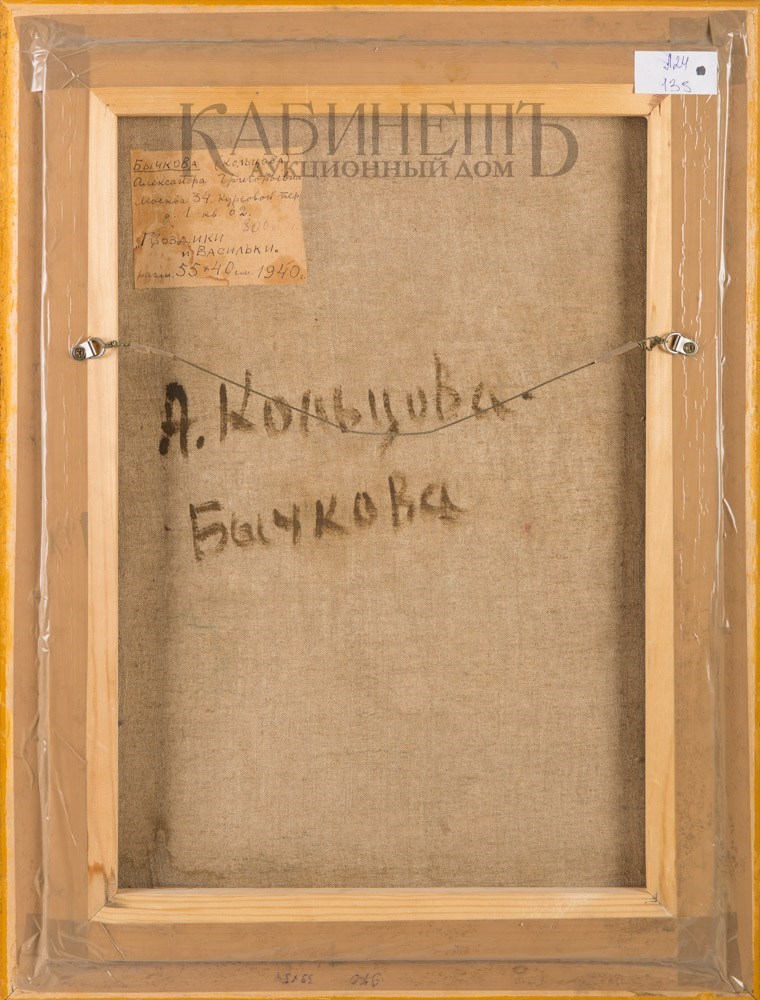 А24
135
КАБИНЕТЪ
АУКЦИОННЫЙ ДОМ
Бычкова (Кольцова)
Александра Григорьевна
Москва 34. Курсовой пер
д. 1 кв. 02.
300
Гвоздики
и Васильки.
разм. 55×40 см. 1940.
А. Кольцова-
Бычкова